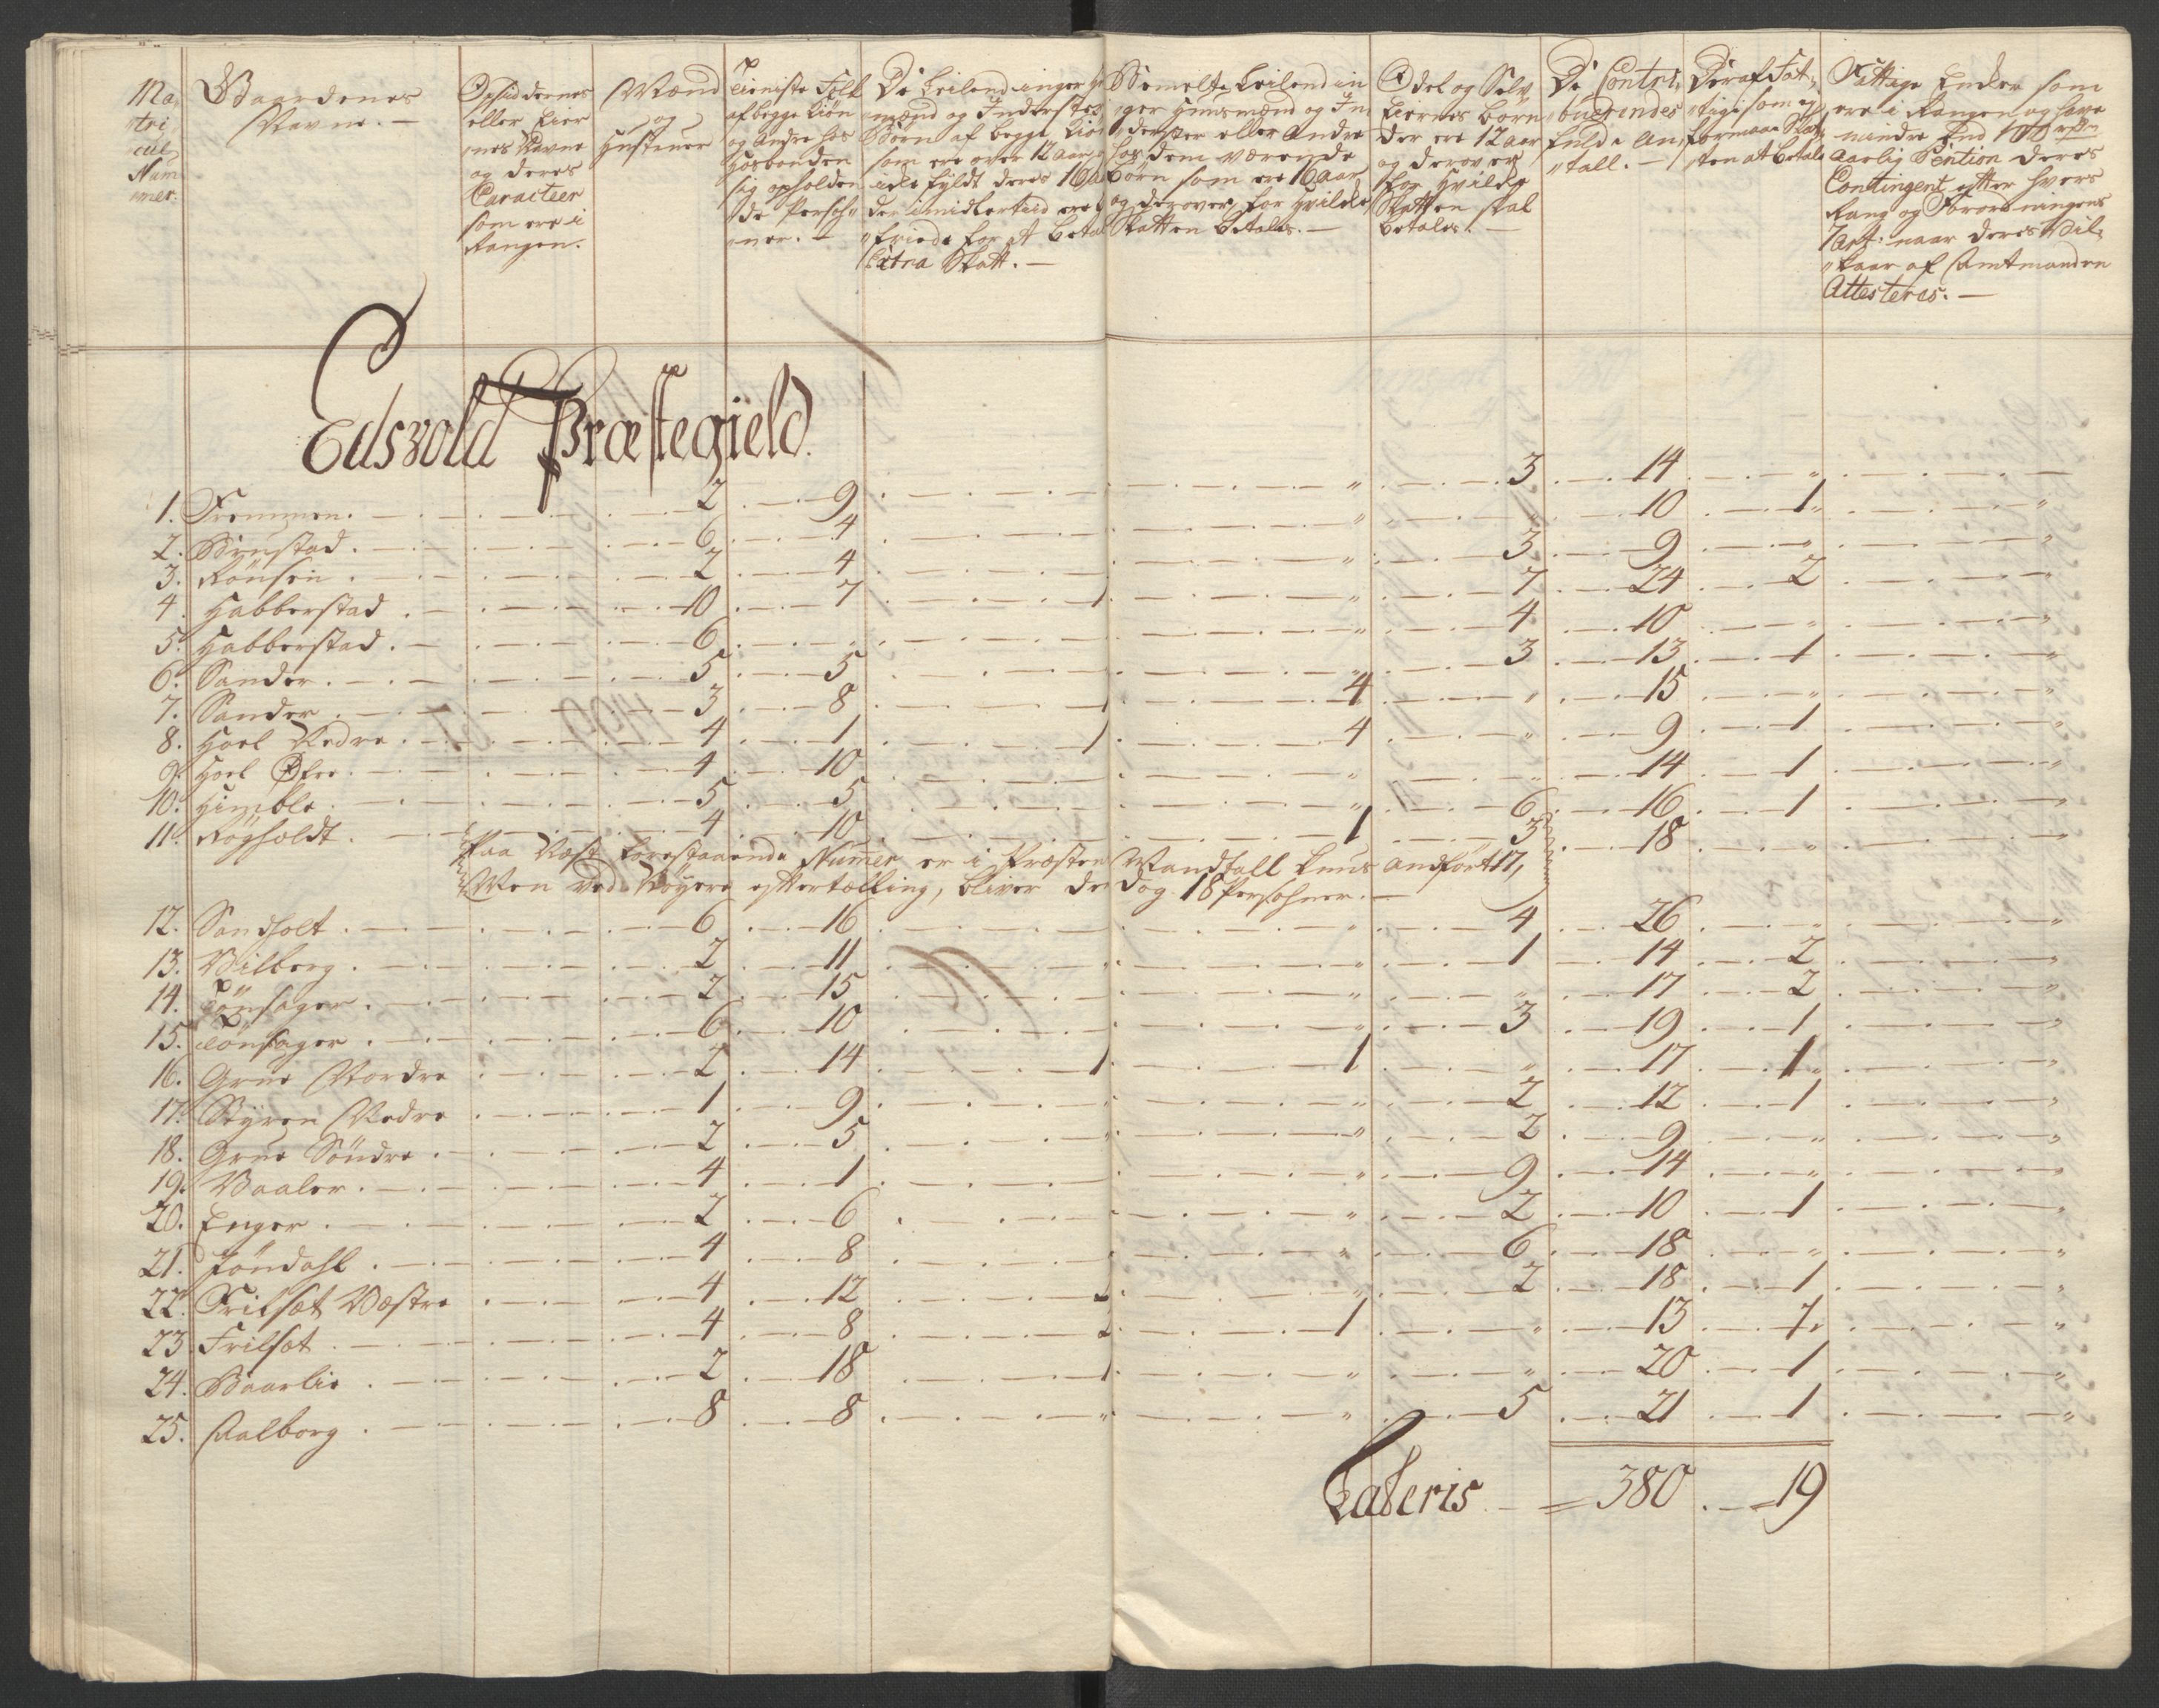 Ma,
"tri,
cul,
Num
mer.
Gaardenes
Navne. —
Opsiddernes
eller Eier
nes Navne
og deres
Caracteer
som ere i
Rangen.
Mænd
og
Hustruer
Tieniste Folk
af begge Kiön
og andre hos
Hosbonden
sig opholden
de Persoh„
ner. —
De Leilendinger H
mænd og Inderster
Börn af begge Kiön
som ere over 12 aar
icke fyldt deres 16 a
der imidlertiid ere
"friede for at beta
Extra Skatt. —
Bemelte Leilendin
ger Huusmænd og In
"derster eller andre
hos dem værende
börn som ere 16 aar
og derover, for hvilcke
Skatten betales. —
Odel og Selv
Eiernes Börn
der ere 12 aar
og derover
for hvilcke
Skatten skal
betales. —
De Contri„
"buerendes
fulde An,
"tall. —
Deraf Fat„
"tige som ej
formaar Skat
ten at betale
Fattige Encker som
ere i Rangen og have
mindre End 100 rdr
aarlig Pention deres
Contingent efter hvers
Rang og Forordningens
7 art: naar deres Vil„
"kaar af Amtmanden
Attesteres. —
Edsvold Præstegield.
1. Frommen. 2 9 " 3 14 "
2. Bÿnstad. 6 4 " " 10 1 "
3. Rönsen. 2 4 " 3 9 " "
4. Habberstad. 10 7 1 " 7 24 2 "
5. Habberstad. 6 " " 4 10 " "
6. Sander. 5 5 " 3 13 1 "
7. Sander. 3 8 1 4 " 15 " "
8. Hoel Nedre. 4 1 1 4 " 9 1 "
9. Hoel Øfre. 4 10 " " 14 1 "
10. Himble. 5 5 " 6 16 1 "
11. Rögholdt. 4 10 1 3 18 " "
Paa Næst forestaaende Numer er i Præstens Mandtall kuns andfört 17,
Men ved Nöyere eftertælling, bliver der dog 18 Persohner. —
12. Sandholt. 6 16 " 4 26 " "
13. Wilberg. 2 11 " " 1 14 2 "
14. Tönsager. 2 15 " " 17 2 "
15. Tönsager. 6 10 " 3 19 1 "
16. Grue Nordre 2 14 1 1 " 17 1 "
17. Bÿren Nedre 1 9 " " 2 12 1 "
18. Grue Söndre. 2 5 " " 2 9 " "
19. Waaler. 4 1 " 9 14 " "
20. Enger. 2 6 " 2 10 1 "
21. Jöndahl. 4 8 " 6 18 " "
22. Frilset Væstre 4 12 " " 2 18 1 "
23 Frilset. 4 8 " 1 " 13 1 "
24. Baarlie. 2 18 " " 20 1 "
25. Aalborg. 8 8 " " 5 21 1 "
Lateris — 380 . — 19